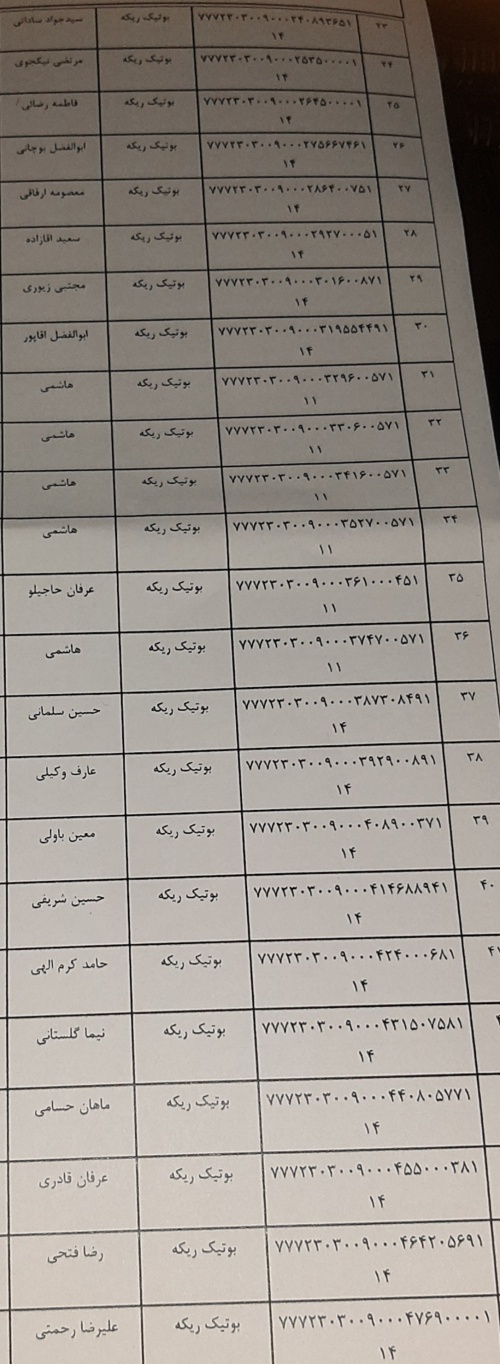 ۲۳ ۷۷۷۲۳۰۳۰۰۹۰۰۰۲۴۰۸۹۳۶۵۱ بوتیک ریکه سیدجواد ساداتی
۱۴
۲۴ ۷۷۷۲۳۰۳۰۰۹۰۰۰۲۵۳۵۰۰۰۰۱ بوتیک ریکه مرتضی نیکخوی
۱۴
۲۵ ۷۷۷۲۳۰۳۰۰۹۰۰۰۲۶۴۵۰۰۰۰۱ بوتیک ریکه فاطمه رضائی
۱۴
۲۶ ۷۷۷۲۳۰۳۰۰۹۰۰۰۲۷۵۶۶۷۴۶۱ بوتیک ریکه ابوالفضل بوچانی
۱۴
۲۷ ۷۷۷۲۳۰۳۰۰۹۰۰۰۲۸۶۴۰۰۷۵۱ بوتیک ریکه معصومه ارفاقی
۱۴
۲۸ ۷۷۷۲۳۰۳۰۰۹۰۰۰۲۹۲۷۰۰۰۵۱ بوتیک ریکه سعید اقازاده
۱۴
۲۹ ۷۷۷۲۳۰۳۰۰۹۰۰۰۳۰۱۶۰۰۸۷۱ بوتیک ریکه مجتبی زیوری
۱۴
۳۰ ۷۷۷۲۳۰۳۰۰۹۰۰۰۳۱۹۵۵۴۴۹۱ بوتیک ریکه ابوالفضل اقاپور
۱۴
۳۱ ۷۷۷۲۳۰۳۰۰۹۰۰۰۳۲۹۶۰۰۵۷۱ بوتیک ریکه هاشمی
۱۱
۳۲ ۷۷۷۲۳۰۳۰۰۹۰۰۰۳۳۰۶۰۰۵۷۱ بوتیک ریکه هاشمی
۱۱
۳۳ ۷۷۷۲۳۰۳۰۰۹۰۰۰۳۴۱۶۰۰۵۷۱ بوتیک ریکه هاشمی
۱۱
۳۴ ۷۷۷۲۳۰۳۰۰۹۰۰۰۳۵۲۷۰۰۵۷۱ بوتیک ریکه هاشمی
۱۱
۳۵ ۷۷۷۲۳۰۳۰۰۹۰۰۰۳۶۱۰۰۰۴۵۱ بوتیک ریکه عرفان حاجیلو
۱۱
۳۶ ۷۷۷۲۳۰۳۰۰۹۰۰۰۳۷۴۷۰۰۵۷۱ بوتیک ریکه هاشمی
۱۱
۳۷ ۷۷۷۲۳۰۳۰۰۹۰۰۰۳۸۷۳۰۸۴۹۱ بوتیک ریکه حسین سلمانی
۱۴
۳۸ ۷۷۷۲۳۰۳۰۰۹۰۰۰۳۹۲۹۰۰۸۹۱ بوتیک ریکه عارف وکیلی
۱۴
۳۹ ۷۷۷۲۳۰۳۰۰۹۰۰۰۴۰۸۹۰۰۳۷۱ بوتیک ریکه معین باولی
۱۴
۴۰ ۷۷۷۲۳۰۳۰۰۹۰۰۰۴۱۴۶۸۸۹۴۱ بوتیک ریکه حسین شریفی
۱۴
۷۷۷۲۳۰۳۰۰۹۰۰۰۴۲۴۰۰۰۶۸۱ بوتیک ریکه حامد کرم الهی
۱۴
۷۷۷۲۳۰۳۰۰۹۰۰۰۴۳۱۵۰۷۵۸۱ بوتیک ریکه نیما گلستانی
۱۴
۷۷۷۲۳۰۳۰۰۹۰۰۰۴۴۰۸۰۵۷۷۱ بوتیک ریکه ماهان حسامی
۱۴
۷۷۷۲۳۰۳۰۰۹۰۰۰۴۵۵۰۰۰۳۸۱ بوتیک ریکه عرفان قادری
۱۴
۷۷۷۲۳۰۳۰۰۹۰۰۰۴۶۴۲۰۵۶۹۱ بوتیک ریکه رضا فتحی
۱۴
۷۷۷۲۳۰۳۰۰۹۰۰۰۴۷۶۹۰۰۰۰۱ بوتیک ریکه علیرضا رحمتی
۱۴